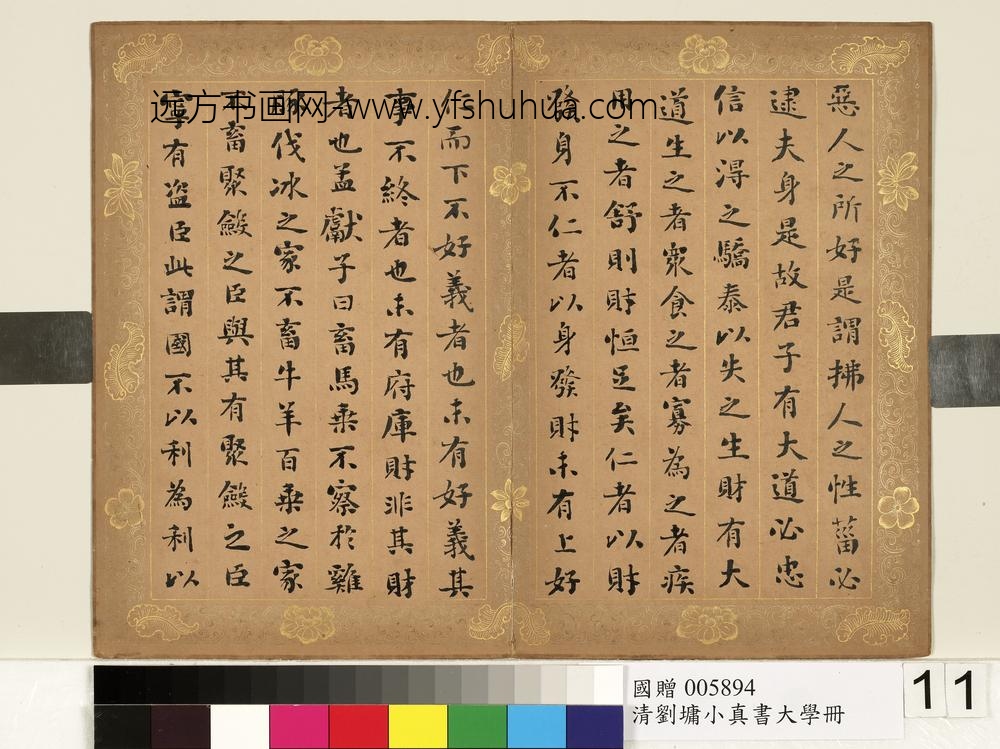 惡人之所好是謂拂人之性菑必
逮夫身是故君子有大道必忠
信以得之驕泰以失之生財有大
道生之者眾食之者寡為之者疾
用之者舒則財恒足矣仁者以財
發身不仁者以身發財未有上好
仁而下不好義者也未有好義其
事不終者也未有府庫財非其財
者也孟獻子曰畜馬乘不察於雞
豚伐冰之家不畜牛羊百乘之家
不畜聚斂之臣與其有聚斂之臣
寧有盜臣此謂國不以利為利以
远方书画网 www.yfshuhua.com
國贈 005894
清劉墉小真書大學冊
11